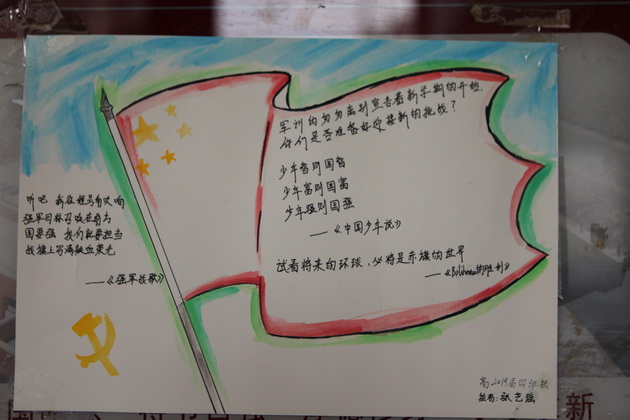 军训的匆匆离别宣告着新学期的开始
你们是否准备好迎接新的挑战？
少年智则国智
少年富则国富
少年强则国强
——《中国少年说》
试看将来的环球，必将是赤旗的世界
——《Bolshevism的胜利》
听吧 新征程号角吹响
强军目标召唤在前方
国要强 我们就要担当
战旗上写满铁血荣光
——《强军战歌》